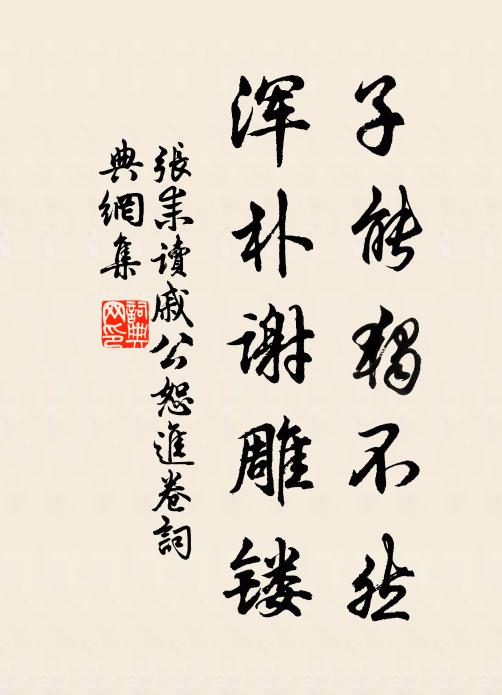 子能独不然
浑朴谢雕镂
張耒讀戚公恕進卷詞
典網集
詞典
网印